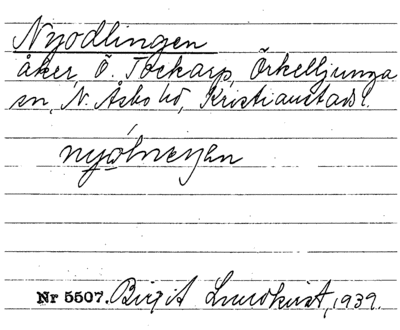 Nyodlingen
åker, Ö. Tockarp, Örkelljunga
sn, N. Åsbo hd, Kristianstads l.
Nr 5507. Birgit Lundkvist, 1939.